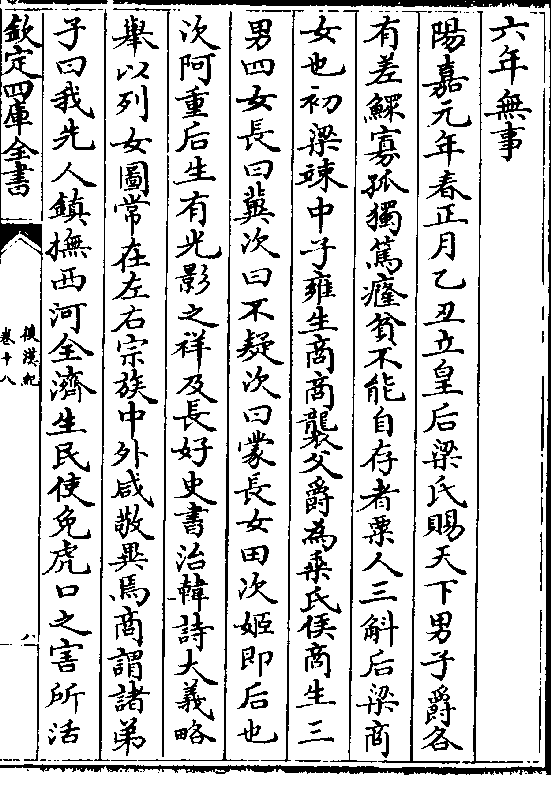 六年無事
陽嘉元年春正月乙丑立皇后梁氏賜天下男子爵各
有差鰥寡孤獨篤癃貧不能自存者粟人三斛后梁商
女也初梁竦中子雍生商商襲父爵為乗氏侯商生三
男四女長曰冀次曰不疑次曰蒙長女田次姬即后也
次阿重后生有光影之祥及長好史書治韓詩大義略
舉以列女圖常在左右宗族中外咸敬異焉商謂諸弟
子曰我先人鎮撫西河全濟生民使免虎口之害所活
欽定四庫全書
後漢紀
卷十八
八